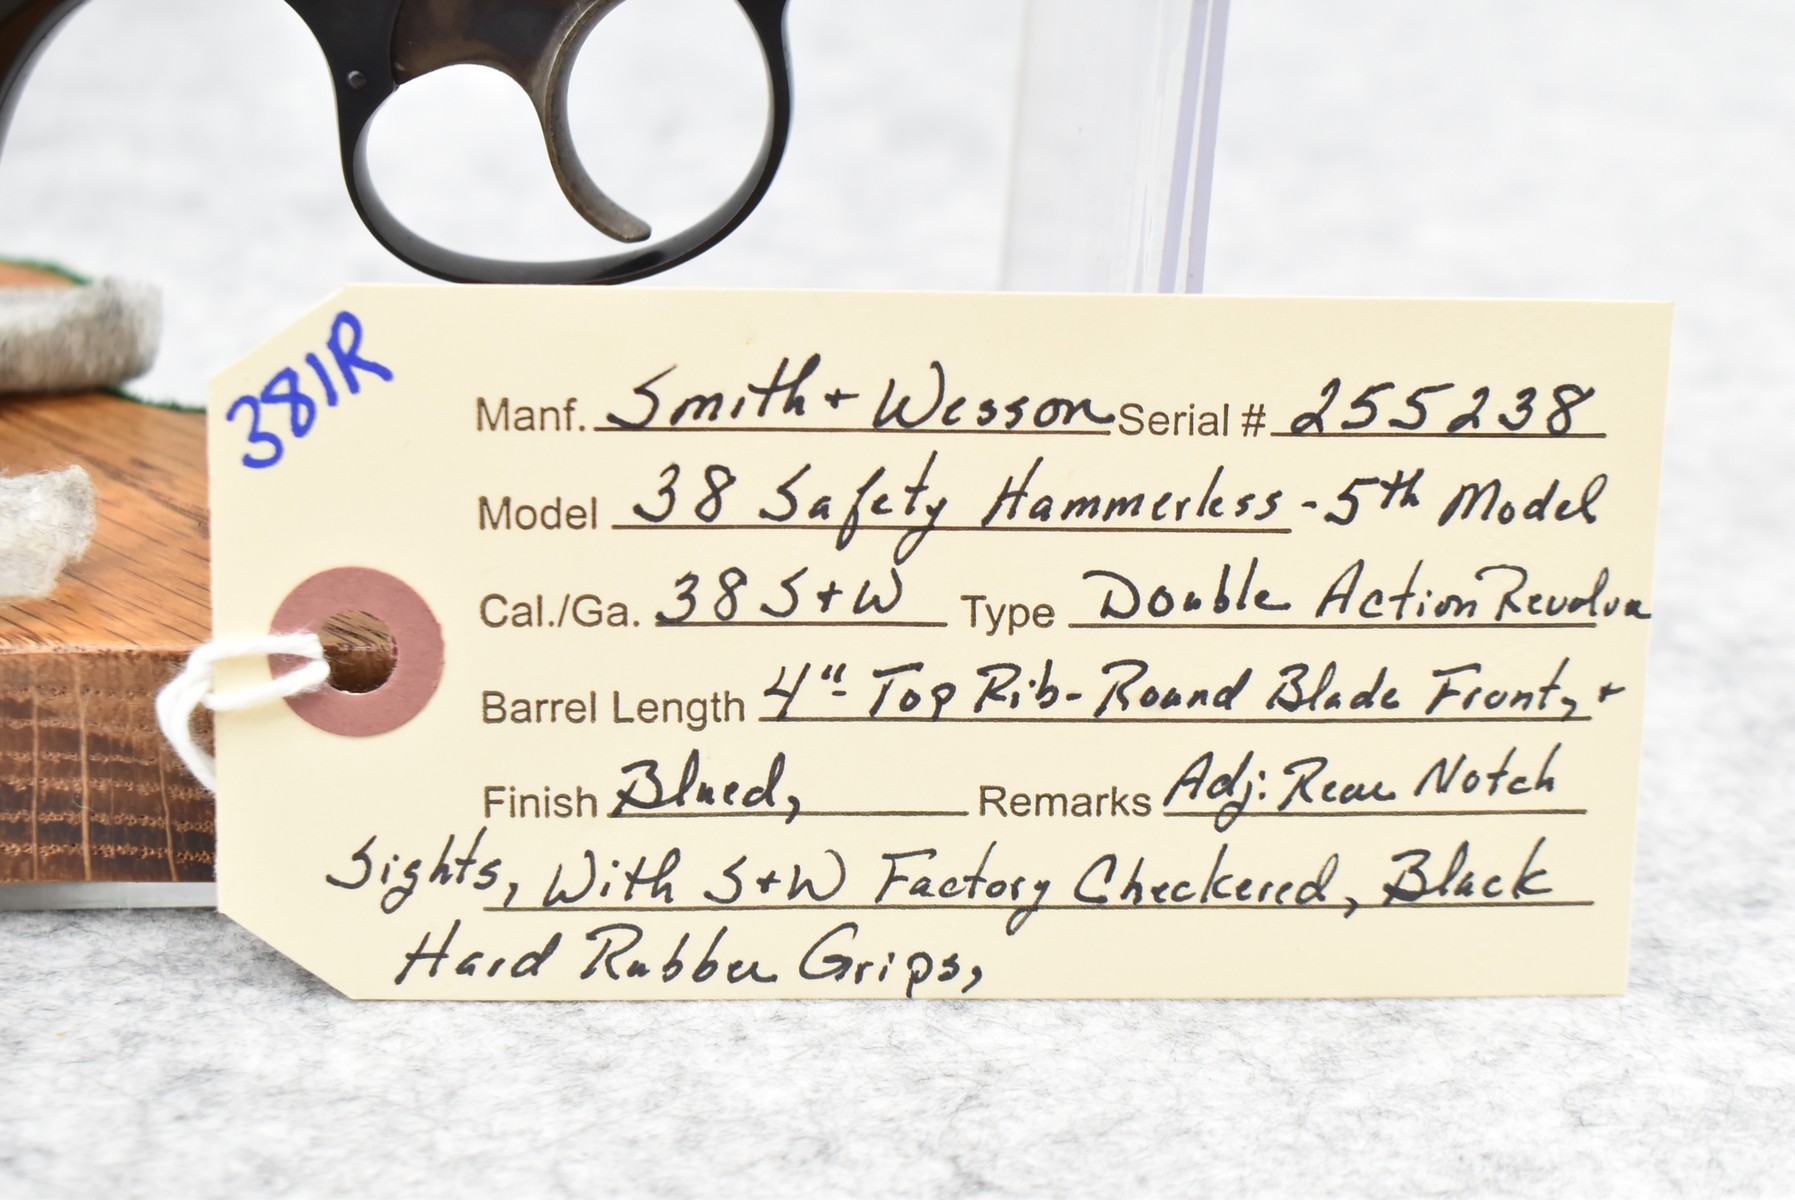 381R
Manf. Smith + Wesson Serial # 255238
Model 38 Safety Hammerless - 5th Model
Cal./Ga. 38 S+W Type Double Action Revolver
Barrel Length 4"- Top Rib - Round Blade Front, +
Finish Blued, Remarks Adj. Rear Notch
Sights, With S+W Factory Checkered, Black
Hard Rubber Grips,